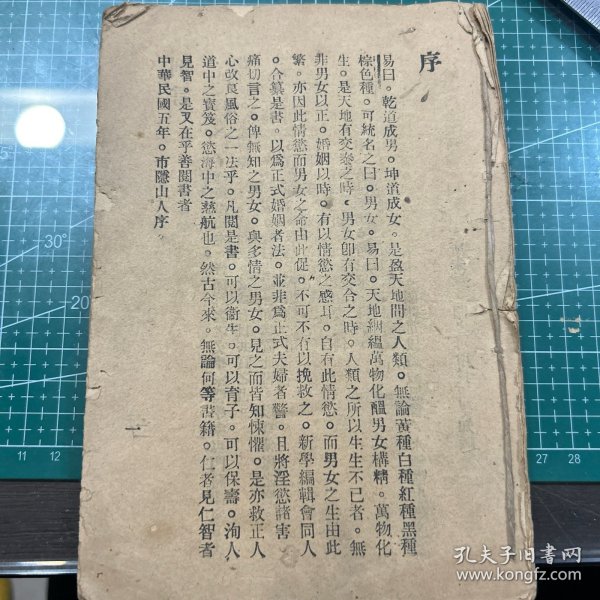 序
易曰。乾道成男。坤道成女。是盈天地間之人類。無論黃種白種紅種黑種
棕色種。可統名之曰。男女。易曰。天地絪縕萬物化醞男女構精。萬物化
生。是天地有交泰之時。男女卽有交合之時。人類之所以生生不已者。無
非男女以正。婚姻以時。有以情慾之感耳。自有此情慾。而男女之生由此
繁。亦因此情慾而男女之命由此促。不可不有以挽救之。新學編輯會同人
。合纂是書。以爲正式婚姻者法。並非爲正式夫婦者警。且將淫慾諸害
痛切言之。俾無知之男女。與多情之男女。見之而皆知悚懼。是亦救正人
心改良風俗之一法乎。凡閱是書。可以衞生。可以育子。可以保壽。洵人
道中之寶笈。慾海中之慈航也。然古今來。無論何等書籍。仁者見仁智者
見智。是又在乎善閱書者
中華民國五年。市隱山人序。
一
孔夫子旧书网
www.kongfz.com
30°
20
15
10
5
0
11
12
13
27
28